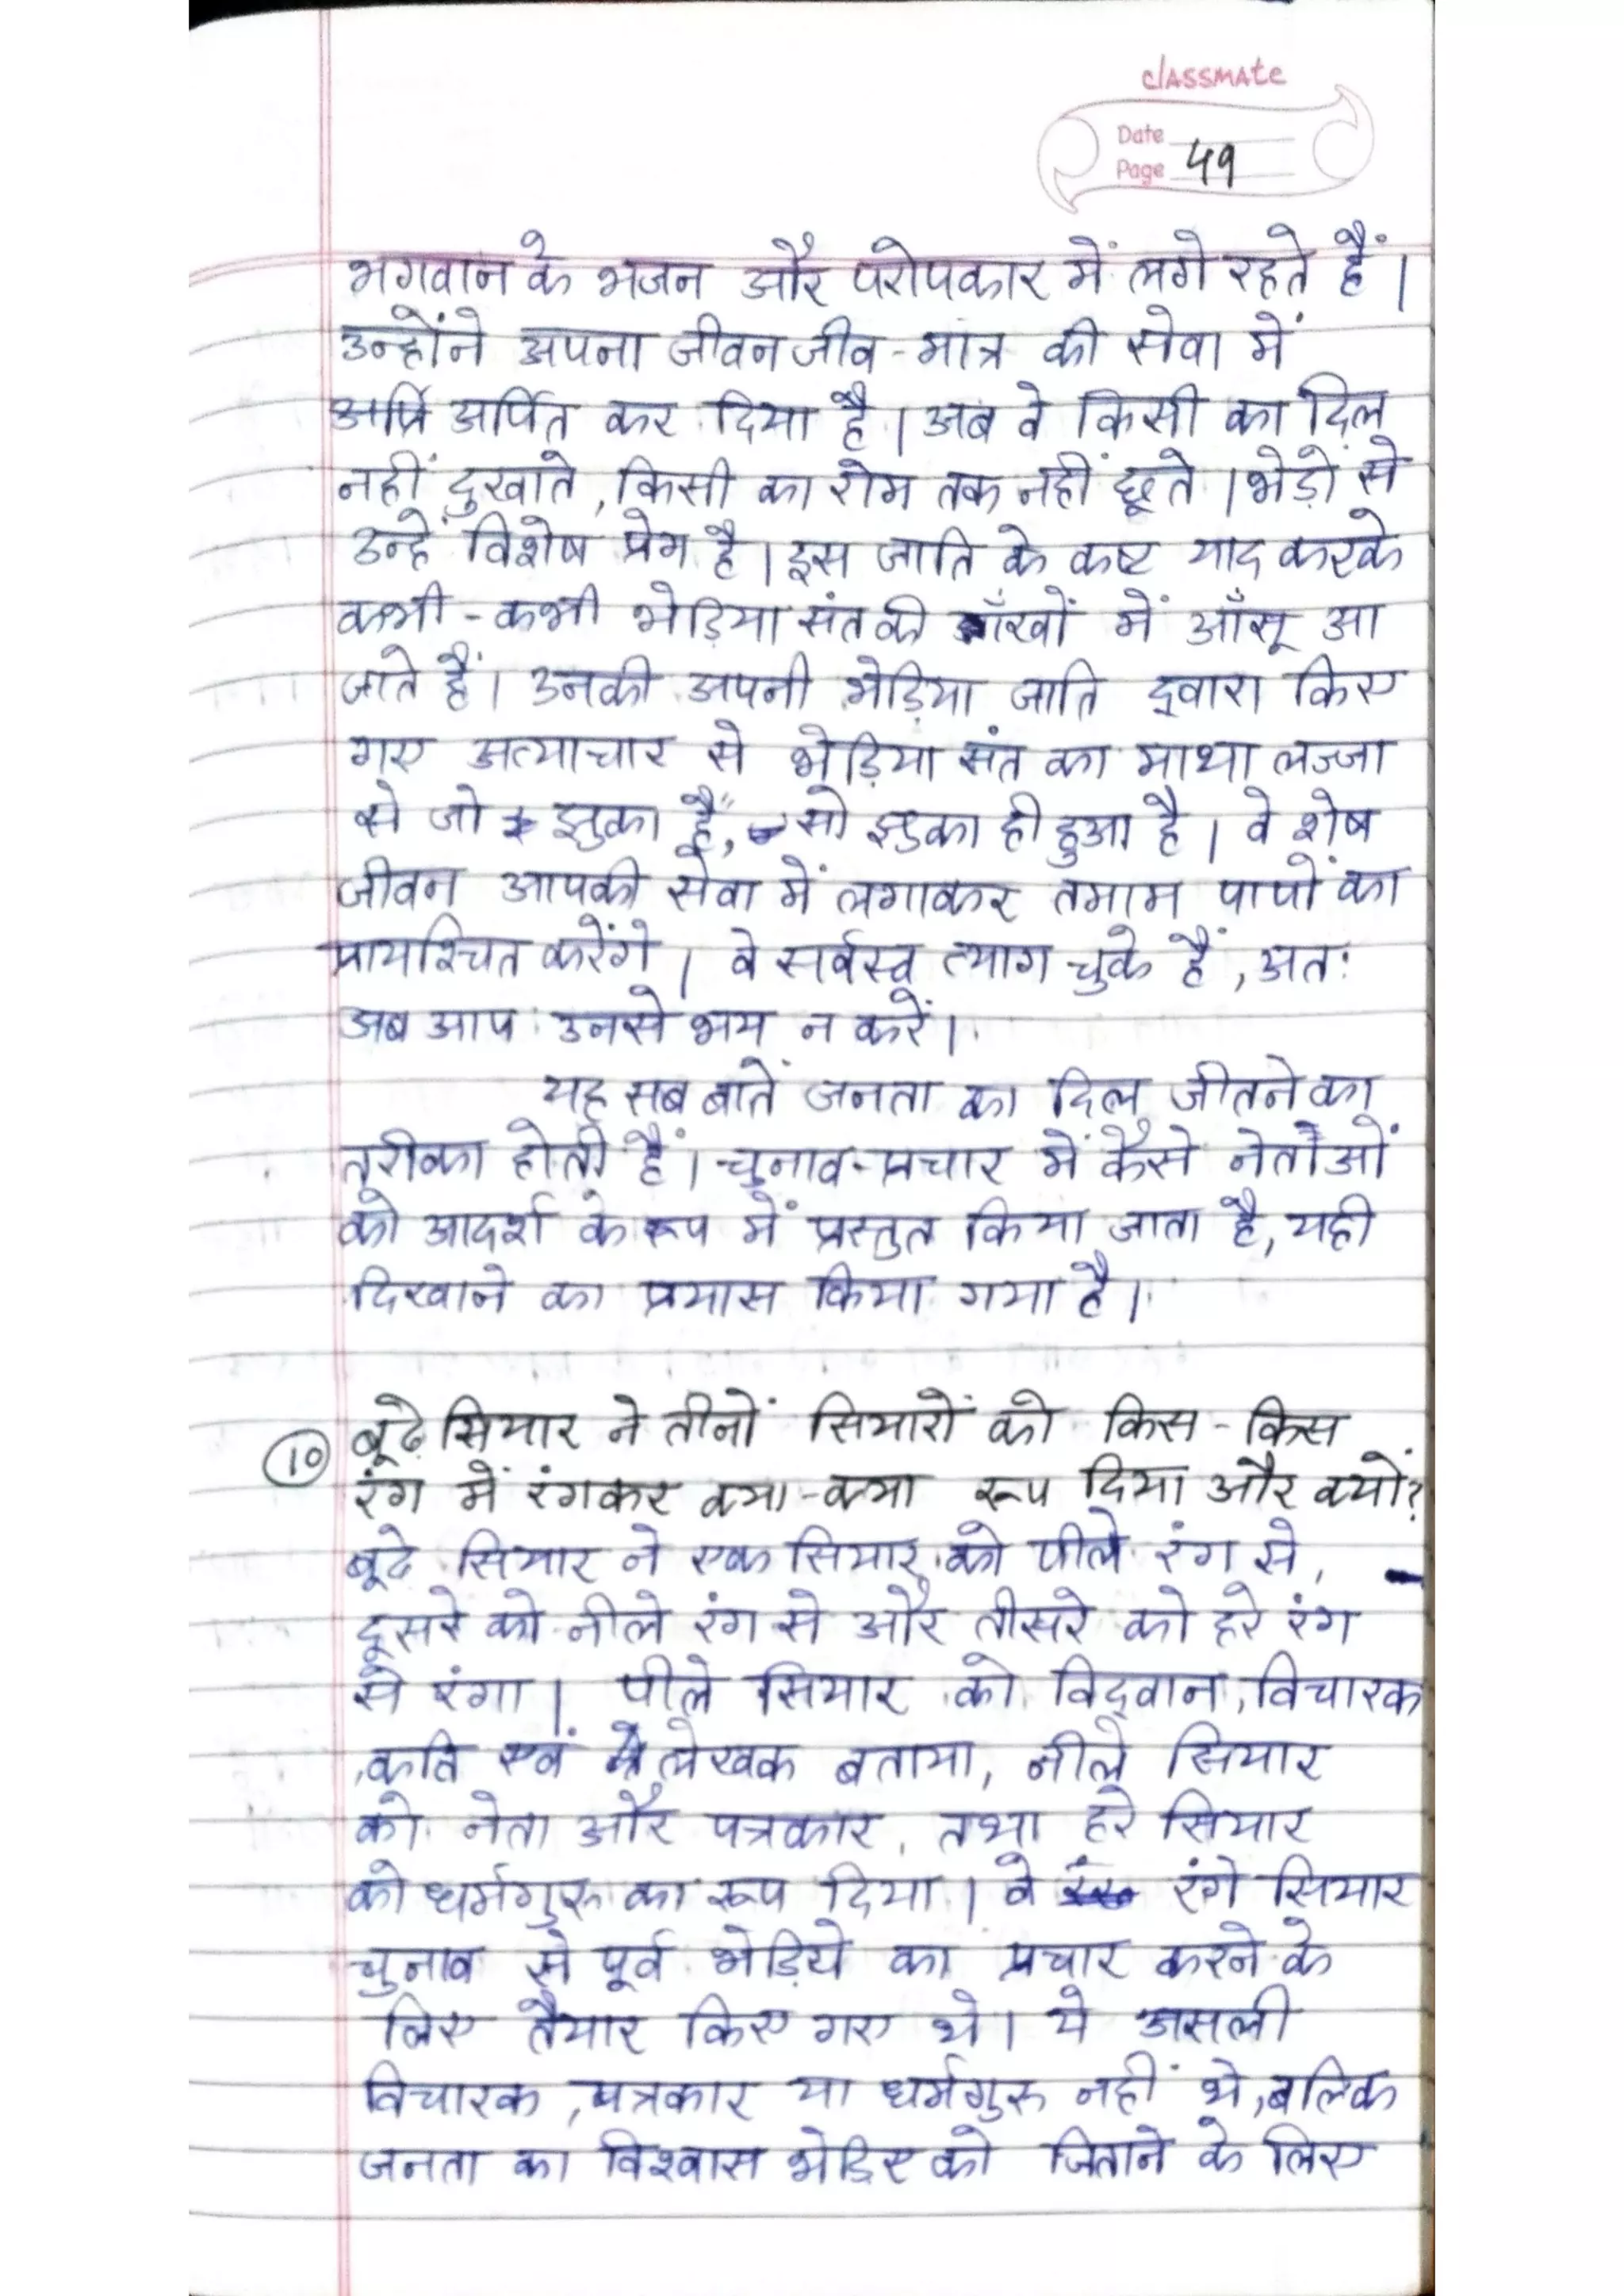 classmate
Date
Page 49
भगवान के भजन और परोपकार में लगे रहते हैं।
उन्होंने अपना जीवन जीव-मात्र की सेवा में
अर्पित कर दिया है। अब वे किसी का दिल
नहीं दुखाते, किसी का रोम तक नहीं छूते। भेड़ों से
उन्हें विशेष प्रेम है। इस जाति के कष्ट याद करके
कभी-कभी भेड़िया संत की आँखों में आँसू आ
जाते हैं। उनकी अपनी भेड़िया जाति द्वारा किए
गए अत्याचार से भेड़िया संत का माथा लज्जा
से जो झुका है, सो झुका ही हुआ है। वे शेष
जीवन आपकी सेवा में लगाकर तमाम पापों का
प्रायश्चित करेंगे। वे सर्वस्व त्याग चुके हैं, अतः
अब आप उनसे भय न करें।
यह सब बातें जनता का दिल जीतने का
तरीका होती हैं। चुनाव-प्रचार में कैसे नेताओं
को आदर्श के रूप में प्रस्तुत किया जाता है, यही
दिखाने का प्रयास किया गया है।
10 बूढ़े सियार ने तीनों सियारों को किस-किस
रंग में रंगकर क्या-क्या रूप दिया और क्यों?
बूढे सियार ने एक सियार को पीले रंग से,
दूसरे को नीले रंग से और तीसरे को हरे रंग
से रंगा। पीले सियार को विद्वान, विचारक
, कवि एवं लेखक बताया, नीले सियार
को नेता और पत्रकार, तथा हरे सियार
को धर्मगुरु का रूप दिया। वे रंगे सियार
चुनाव से पूर्व भेड़िये का प्रचार करने के
लिए तैयार किए गए थे। ये असली
विचारक, पत्रकार या धर्मगुरु नहीं थे, बल्कि
जनता का विश्वास भेड़िए को जिताने के लिए